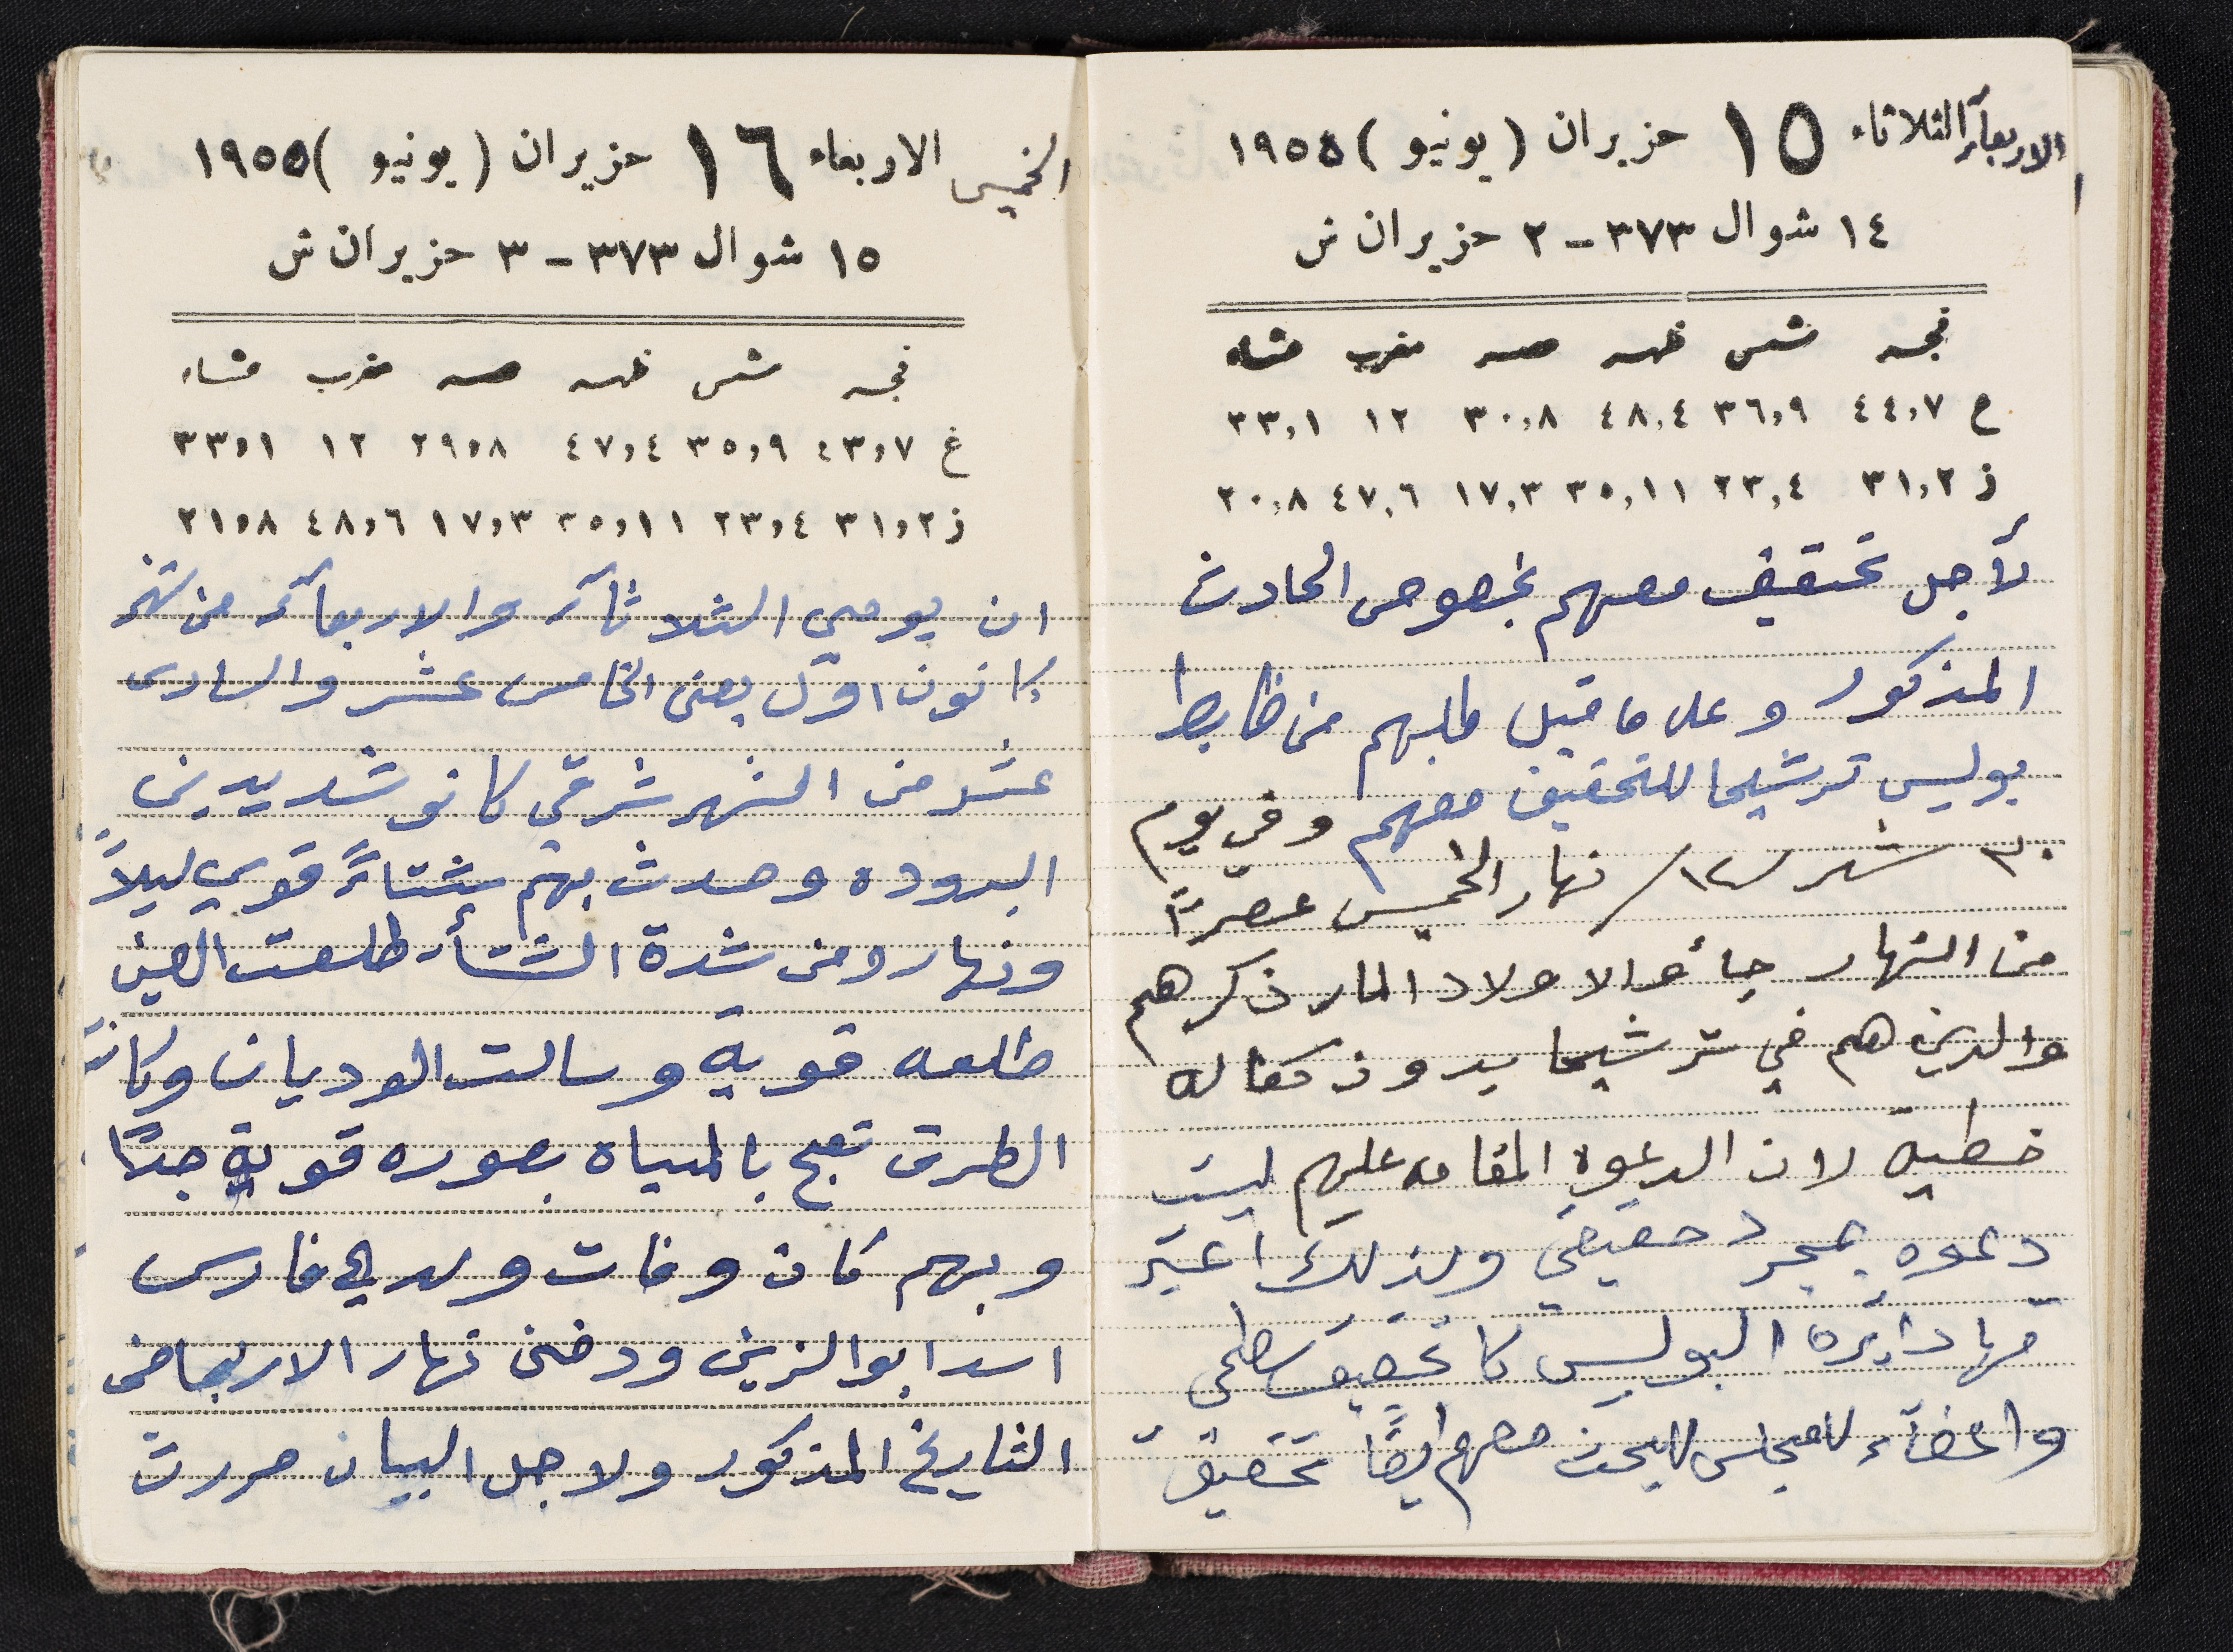 الاربعآء الثلاثاء ١٥ حزيران (يونيو) ١٩٥٥
١٤ شوال ٣٧٣ - ٢ حزيران ش
فجـر شمس ظهـر عصـر مغرب عشاء
ع ٤٤,٧ ٣٦,٩ ٤٨,٤ ٣٠,٨ ١٢ ٣٣,١
ز ٣١,٢ ٢٣,٤ ٣٥,١١ ١٧,٣ ٤٧,٦ ٢٠,٨
لآجل تحقيق معهم بخصوص الحادث
المذكور وعلى ما قيل طلبهم من ظابط
بوليس ترشيحا للتحقيق معهم وفي يوم
٣٠ شهر ١٢/ نهار الخميس عصرًا
من النهار جائو الاولاد المار ذكرهم
والدين هم في ترشيحا بدون كفاله
خطيه لان الدعوه المقامه عليهم ليست
دعوه بمجرد حقيقي ولذلك اعتبر
تها دايرة البوليس كا تحقيق سطحي
واعضآء للمجلس للبحث معهم ايضًا تحقيق
الخميس الاربعاء ١٦ حزيران (يونيو) ١٩٥٥
١٥ شوال ٣٧٣ - ٣ حزيران ش
فجـر شمس ظهـر عصـر مغرب عشاء
غ ٤٣,٧ ٣٥,٩ ٤٧,٤ ٢٩,٨ ١٢ ٣٣,١
ز ٣١,٢ ٢٣,٤ ٣٥,١١ ١٧,٣ ٤٨,٦ ٢١,٨
ان يومي الثلاثآء والاربعآء من شهر
كانون اول يعني الخامس عشر والسادس
عشر من الشهر شرقي كانو شديدين
البروده وحدث بهم شتاءً قوي ليلاً
ونهار ومن شدة الشتأ طلعت العين
طلعه قوية وسالت الوديان وكانت
الطرق تعج بالمياه بصوره قوية جدًا
وبهم كان وفات ولدي فارس
اسد ابو الزين ودفن نهار الاربعا من
التاريخ المذكور ولاجل البيان حررت